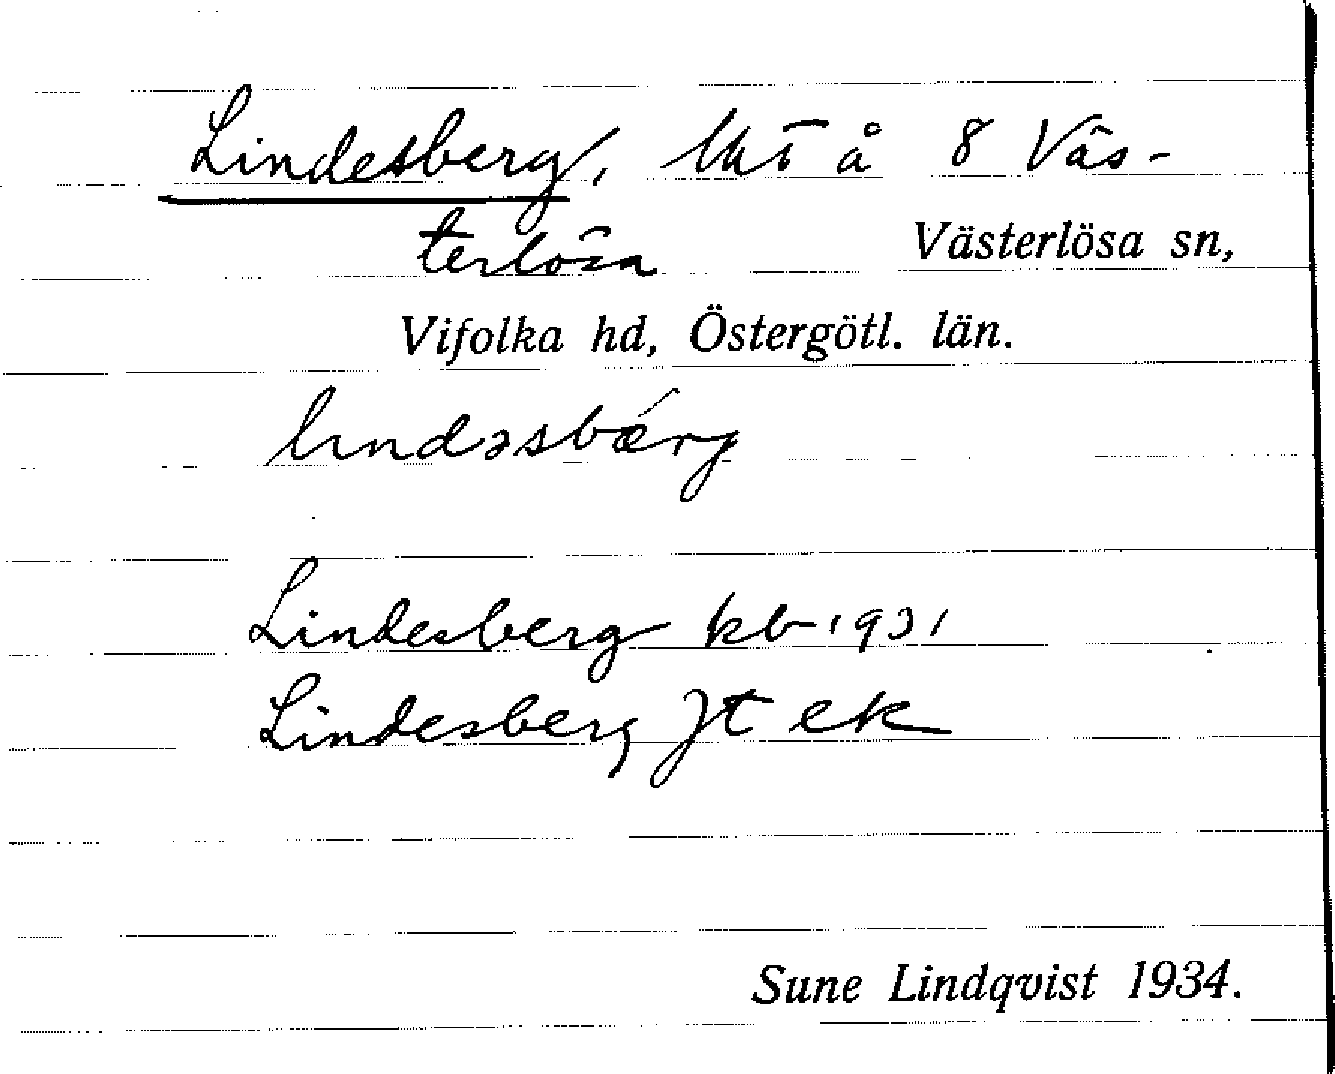 Lindesberg, lht å 8 Väs-
terlösa Västerlösa sn,
Vifolka hd, Östergötl. län.
lındəsbǽrj
Lindesberg kb 1931
Lindesberg Jt ek
Sune Lindqvist 1934.